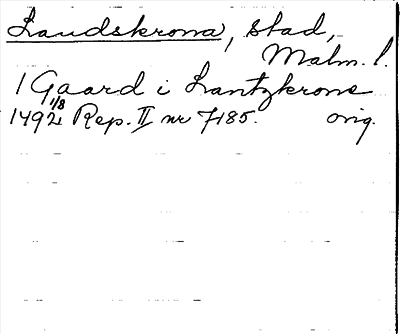 Landskrona, stad,
Malm. l.
1 Gaard i Lantzkrone
1492 1/8 Rep. II nr 7185. orig.